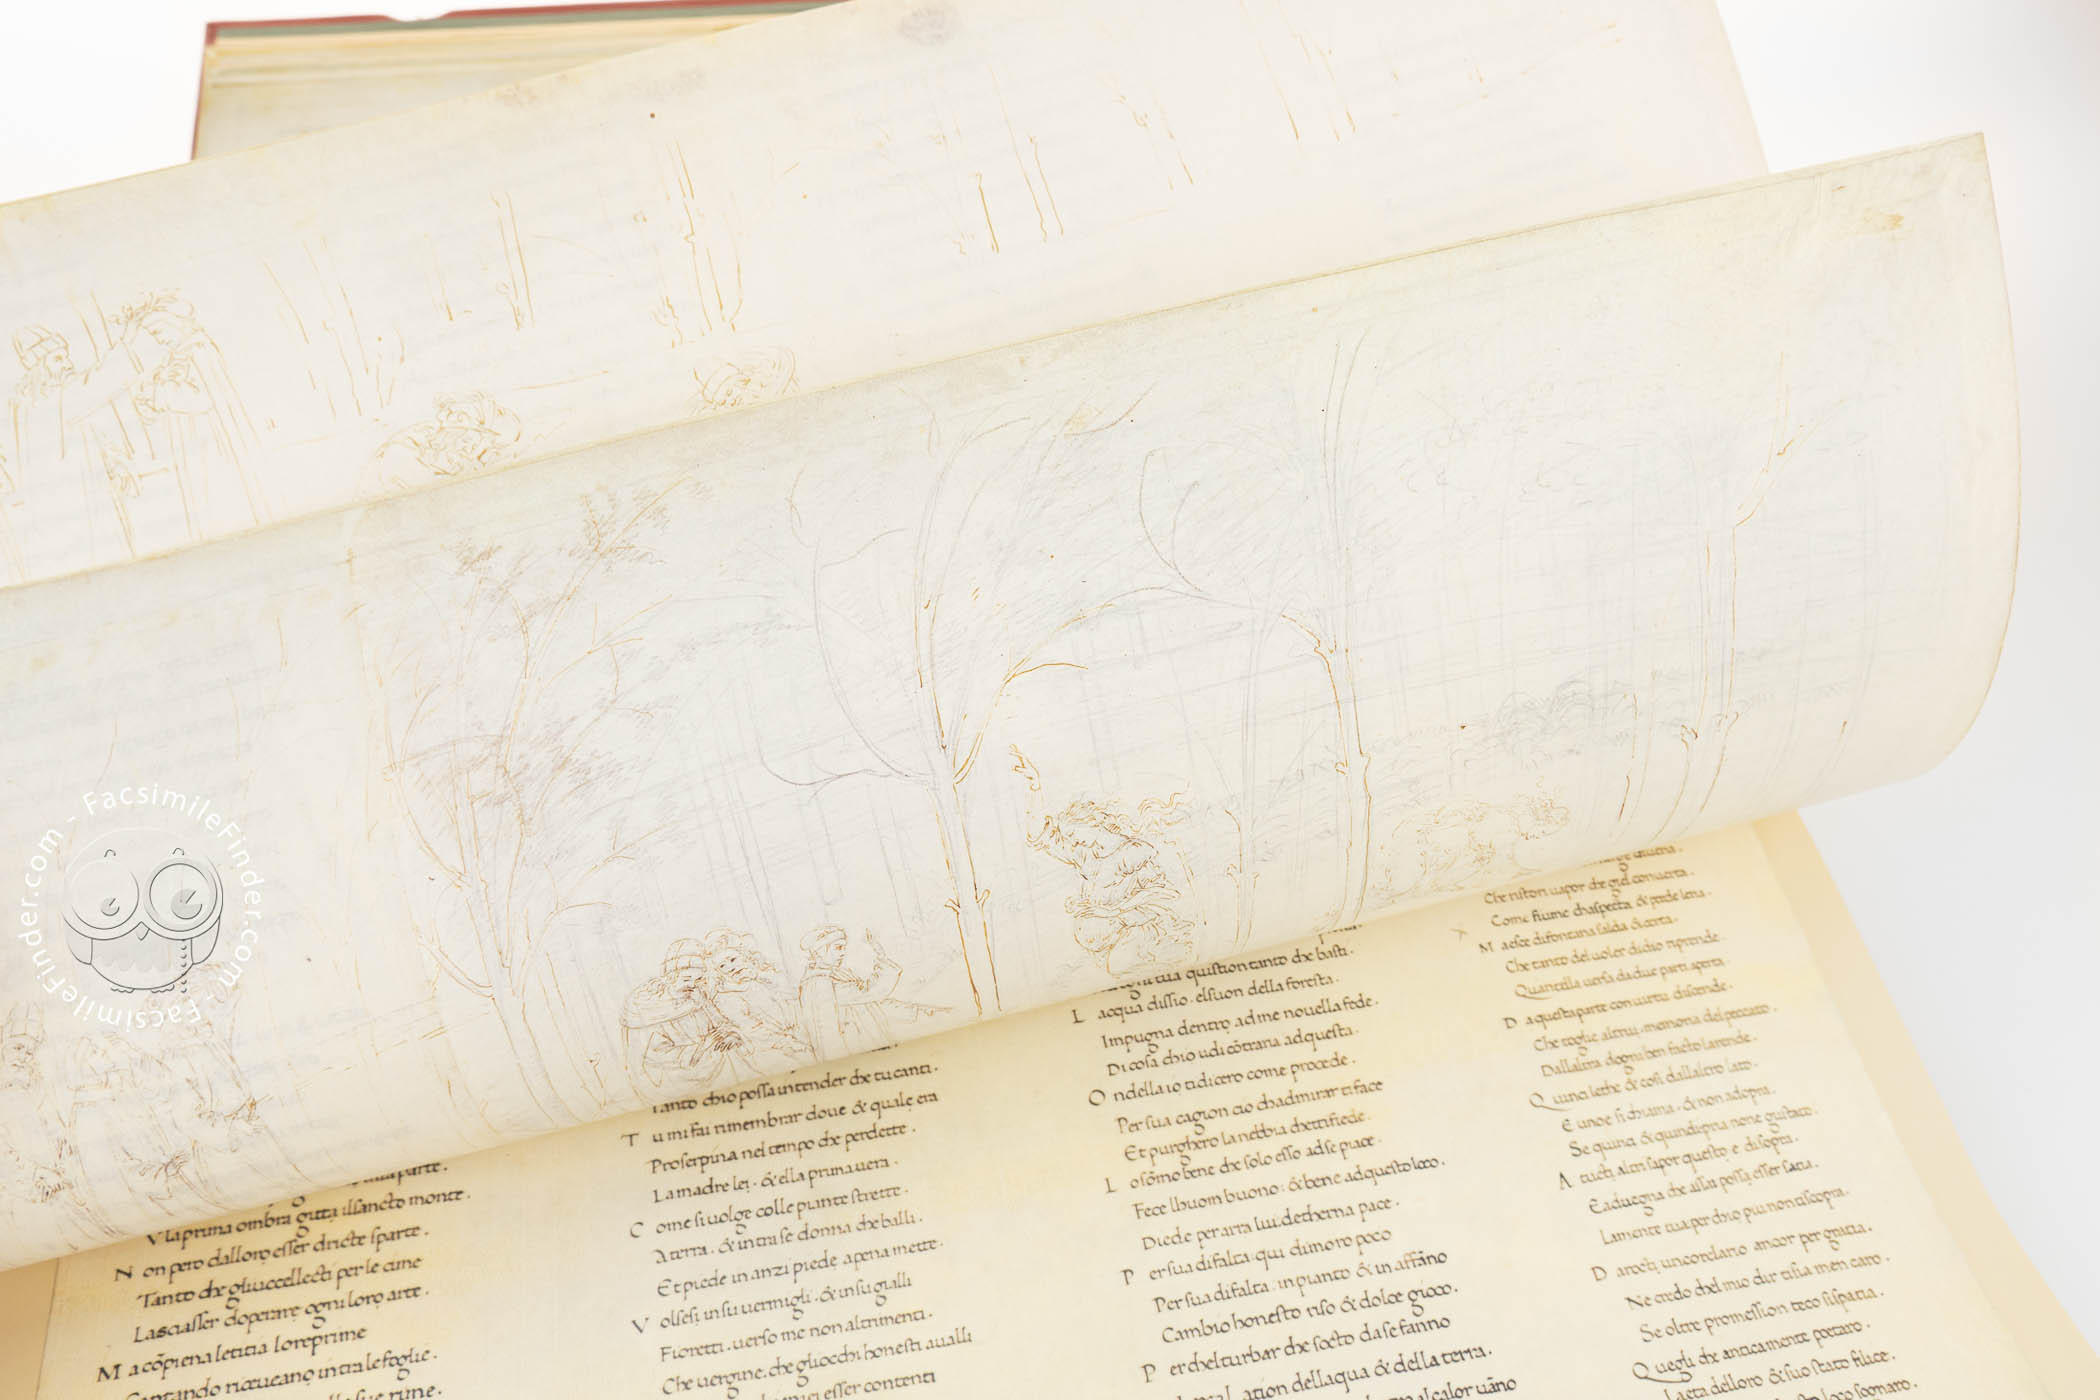 FacsimileFinder.com - FacsimileFinder.com -
parte.
V la pruna ombra gitta il sancto monte.
N on pero dalloro esser dricte sparte.
Tanto che gliuccellecti per le cime
Lasciasser doperare ogni loro arte.
M a cõpiena letitia lore prime
Cantando riceueano intra le foglie.
rime.
Tanto chio possa intender che tu canti.
T u mi fai rimembrar doue & quale era
Proserpina nel tempo che perdette.
La madre lei. & ella primauera.
C ome si uolge colle piante strette.
A terra. & intra se donna che balli.
Et piede inanzi piede apena mette.
V olsesi in su uermigli. & in su gialli
Fioretti. uerso me non altrimenti.
Che uergine. che gliocchi honesti aualli
esser contenti
tua quistion tanto che basti.
L acqua dissio. el suon della foresta.
Impugna dentro ad me nouella fede.
Di cosa chio udi cõtraria ad questa.
O ndella io ti dicero come procede.
Per sua cagion cio chadmirar ti face
Et purghero la nebbia che ti fiede.
L o sõmo bene che solo esso ad se piace.
Fece lhuom buono: & bene ad questo loco.
Diede per arra lui detherna pace.
P er sua difalta: qui dimoro poco
Per sua difalta. in pianto & in affãno
Cambio honesto riso & dolce gioco.
P er chel turbar che socto da se fanno
ation dellaqua & della terra.
al calor uãno
Che ristori uapor che giel conuerta.
Come fiume chaspecta & perde lena.
M a esce di fontana salda & certa.
Che tanto del uoler didio riprende.
Quantella uersa da due parti aperta.
D a questa parte con uirtu discende.
Che toglie altrui memoria del peccato.
Dallaltra dogni ben facto la rende.
Q uinci lethe & cosi dallaltro lato.
E unoe si chiama. & non adopra.
Se quinci & quindi pria none gustato.
A tucti altri sapor questo e disopra.
E aduegna che assai possa esser satia.
La mente tua per chio piu non tiscopra.
D aroeti un corelario ancor per gratia.
Ne credo chel mio dir ti sia men caro.
Se oltre promession teco si spatia.
Q uegli che anticamente poetaro.
Laeta delloro & suo stato filice.
loco sognaro.